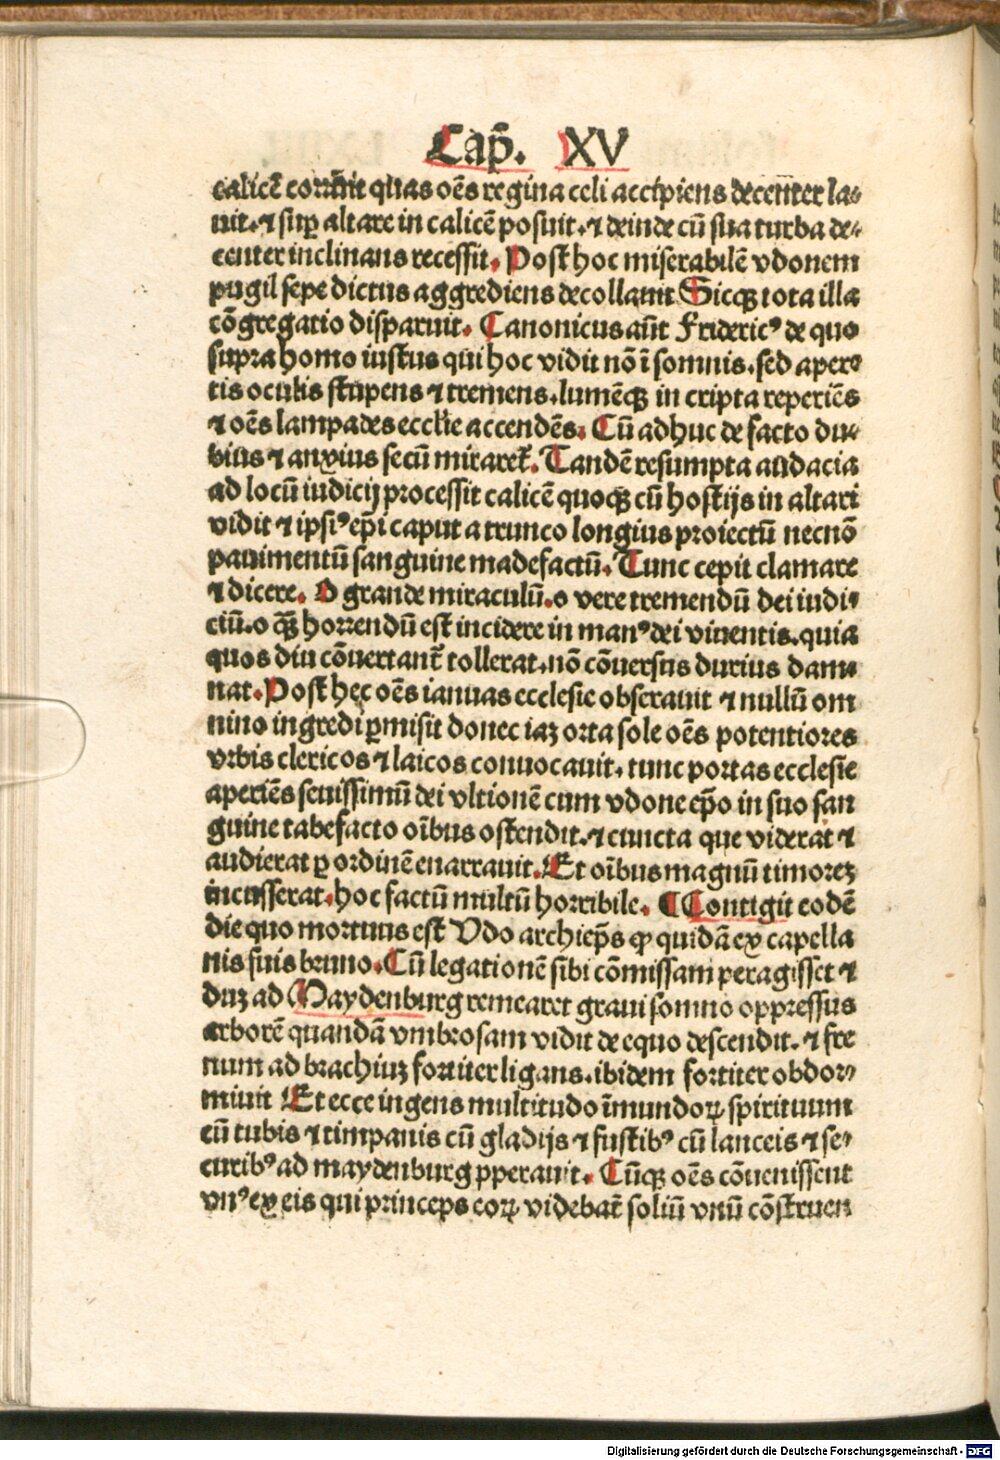 Cap̄. XV
calicē corruit quas oēs regina celi accipiens decenter la⸗
uit. ⁊ suꝑ altare in calicē posuit. ⁊ deinde cū sua turba de⸗
center inclinans recessit. Post hoc miserabilē vdonem
pugil sepe dictus aggrediens decollauit Sicqꝫ tota illa
cōgregatio disparuit. Canonicus aūt Frideric⁹ de quo
supra homo iustus qui hoc vidit nō ī somnis. sed aper⸗
tis oculis stupens ⁊ tremens. lumēqꝫ in cripta reperiēs
⁊ oēs lampades eccl̄ie accendēs. Cū adhuc de facto du⸗
bius ⁊ anxius secū miraret᷑. Tandē resumpta audacia
ad locū iudicij processit calicē quoqꝫ cū hostijs in altari
vidit ⁊ ipsi⁹ ep̄i caput a trunco longius proiectū necnō
pauimentū sanguine madefactū. Tunc cepit clamare
⁊ dicere. O grande miraculū. o vere tremendū dei iudi⸗
ciū. o qꝫ̄ horrendū est incidere in man⁹ dei viuentis. quia
quos diu cōuertant᷑ tollerat. nō cōuersus durius dam⸗
nat. Post hęc oēs ianuas ecclesie obserauit ⁊ nullū om
nino ingredi ꝑmisit donec iaꝫ orta sole oēs potentiores
vrbis clericos ⁊ laicos conuocauit. tunc portas ecclesie
aperiēs seuissimū dei vltionē cum vdone ep̄o in suo san
guine tabefacto oībus ostendit. ⁊ cuncta que viderat ⁊
audierat ꝑ ordinē enarrauit. Et oībus magnū timoreꝫ
incusserat. hoc factū multū horribile. ¶ Contigit eodē
die quo mortuus est Vdo archiep̄s ꝙ quidā ex capella
nis suis bruno. Cū legationē sibi cōmissam peragisset ⁊
duꝫ ad Maydenburg remearet graui somno oppressus
arborē quandā vmbrosam vidit de equo descendit. ⁊ fre
num ad brachiuꝫ fortiter ligans. ibidem fortiter obdor⸗
miuit Et ecce ingens multitudo īmundoꝝ spirituum
cū tubis ⁊ timpanis cū gladijs ⁊ fustib⁹ cū lanceis ⁊ se⸗
curib⁹ ad maydenburg ꝓperauit. Cūqꝫ oēs cōuenissent
vn⁹ ex eis qui princeps eoꝝ videbat᷑ soliū vnū cōstruen
Digitalisierung gefördert durch die Deutsche Forschungsgemeinschaft - DFG